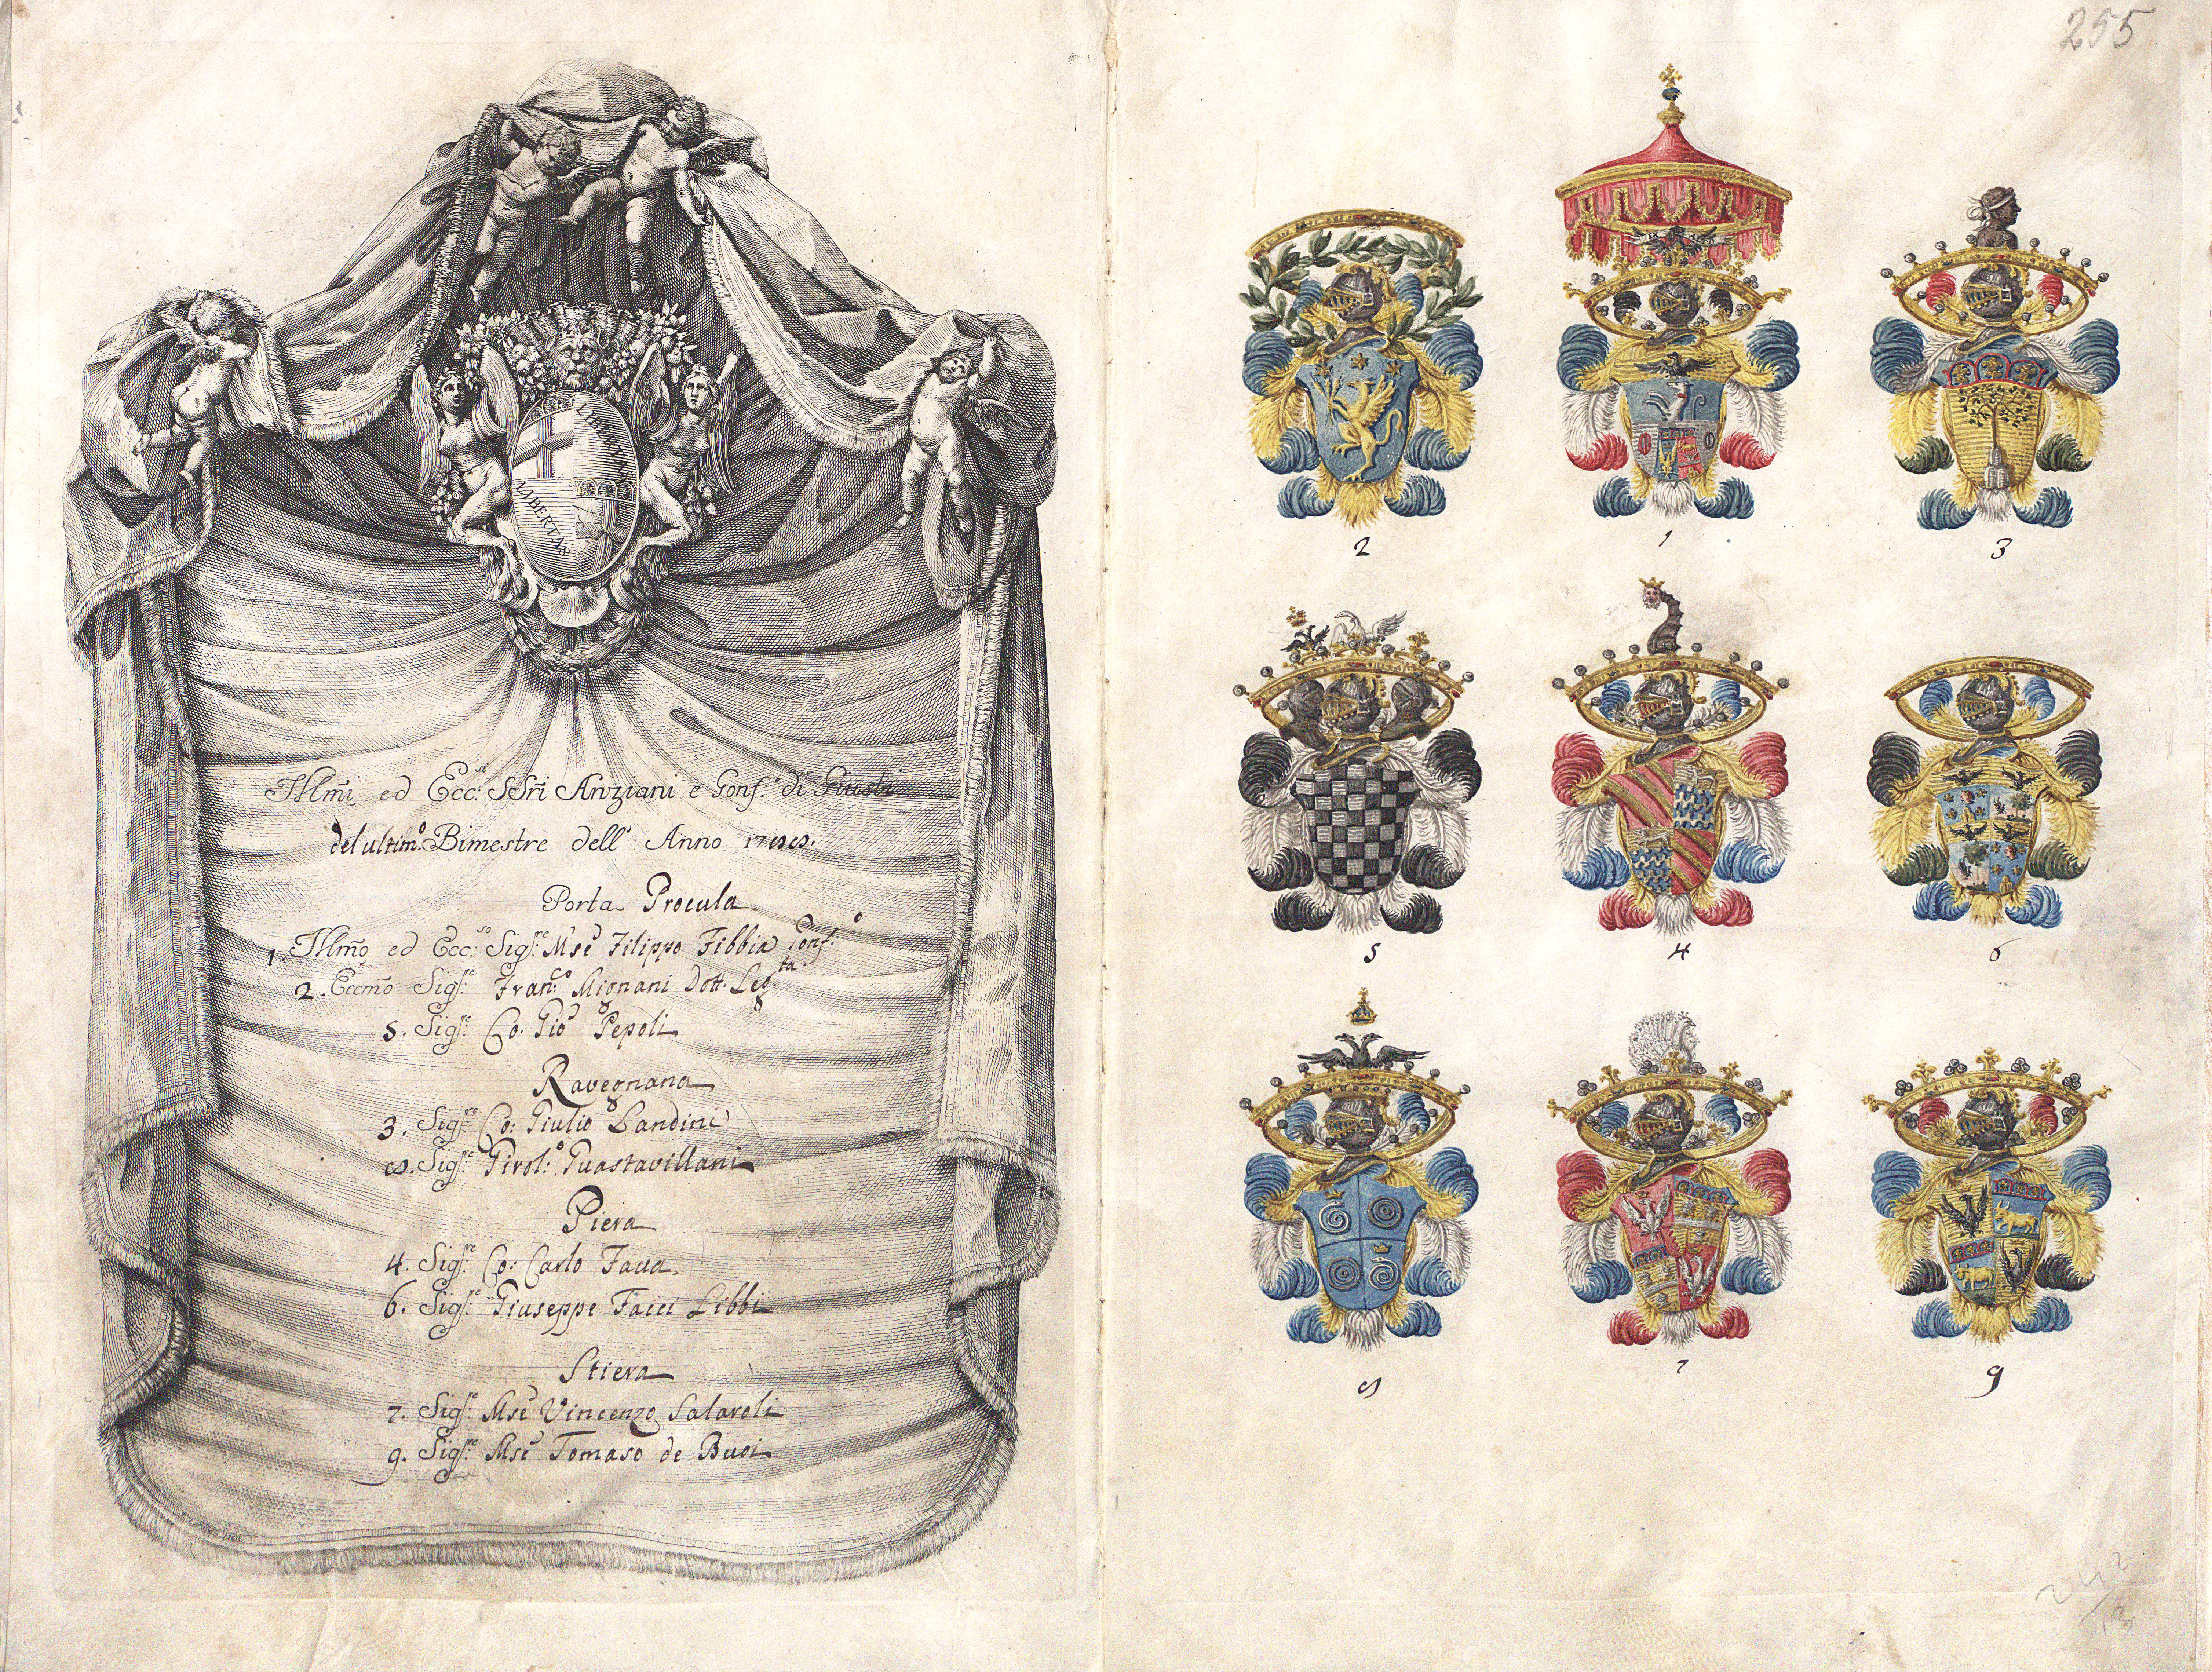 LIBERTAS
LIBERTAS
Illm̃i ed Ecc.si SSri Anziani e Gonf.e di Giusti
del ultim.o Bimestre dell' Anno 1788.
Porta Procula
1. Illm̃o ed Ecc.so Sig.re M.se Filippo Fibbia Gonf.o
2. Eccm̃o Sig.re Fran.co Mignani Dott. Leg.ta
5. Sig.re Co: Gio: Pepoli
Ravegnana
3. Sig.re Co: Giulio Landini
8. Sig.re Girol.o Guastavillani
Piera
4. Sig.re Co: Carlo Fava
6. Sig.re Giuseppe Facci Libbi
Stiera
7. Sig.re M.se Vincenzo Salaroli
9. Sig.re M.se Tomaso de Buoi
255
2 1 3
5 4 6
8 7 9